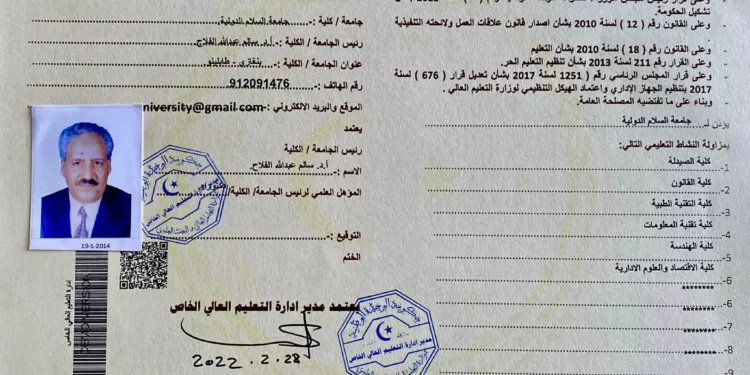 تشكيل الحكومة.
وعلى القانون رقم ( 12 ) لسنة 2010 بشأن اصدار قانون علاقات العمل ولائحته التنفيذية
وعلى القانون رقم ( 18 ) لسنة 2010 بشأن التعليم
وعلى القرار رقم 211 لسنة 2013 بشأن تنظيم التعليم الحر.
وعلى قرار المجلس الرئاسي رقم ( 1251 ) لسنة 2017 بشأن تعديل قرار ( 676 ) لسنة
2017 بتنظيم الجهاز الإداري واعتماد الهيكل التنظيمي لوزارة التعليم العالي .
وبناء على ما تقتضيه المصلحة العامة.
يؤذن لـ جامعة السلام الدولية
بمزاولة النشاط التعليمي التالي:
1- كلية الصيدلة
2- كلية القانون
3- كلية التقنية الطبية
4- كلية تقنية المعلومات
5- كلية الهندسة
6- كلية الاقتصاد والعلوم الادارية
-6 ********
-7 ********
-8 ********
-9
جامعة / كلية :- جامعة السلام الدولية
رئيس الجامعة / الكلية :- أ.د. سالم عبدالله الفلاح
عنوان الجامعة / الكلية :- بنغازي - طابلينو
رقم الهاتف :- 912091476
الموقع والبريد الالكتروني :- niversity@gmail.com
يعتمد
رئيس الجامعة / الكلية
الاسم :- أ.د. سالم عبدالله الفلاح
المؤهل العلمي لرئيس الجامعة/ الكلية:- دكتوراه
التوقيع :-
الختم
يعتمد مدير ادارة التعليم العالي الخاص
2022.2.28
مدير ادارة التعليم العالي الخاص
19-1-2014
ادارة التعليم العالي الخاص
DEMO VERSION